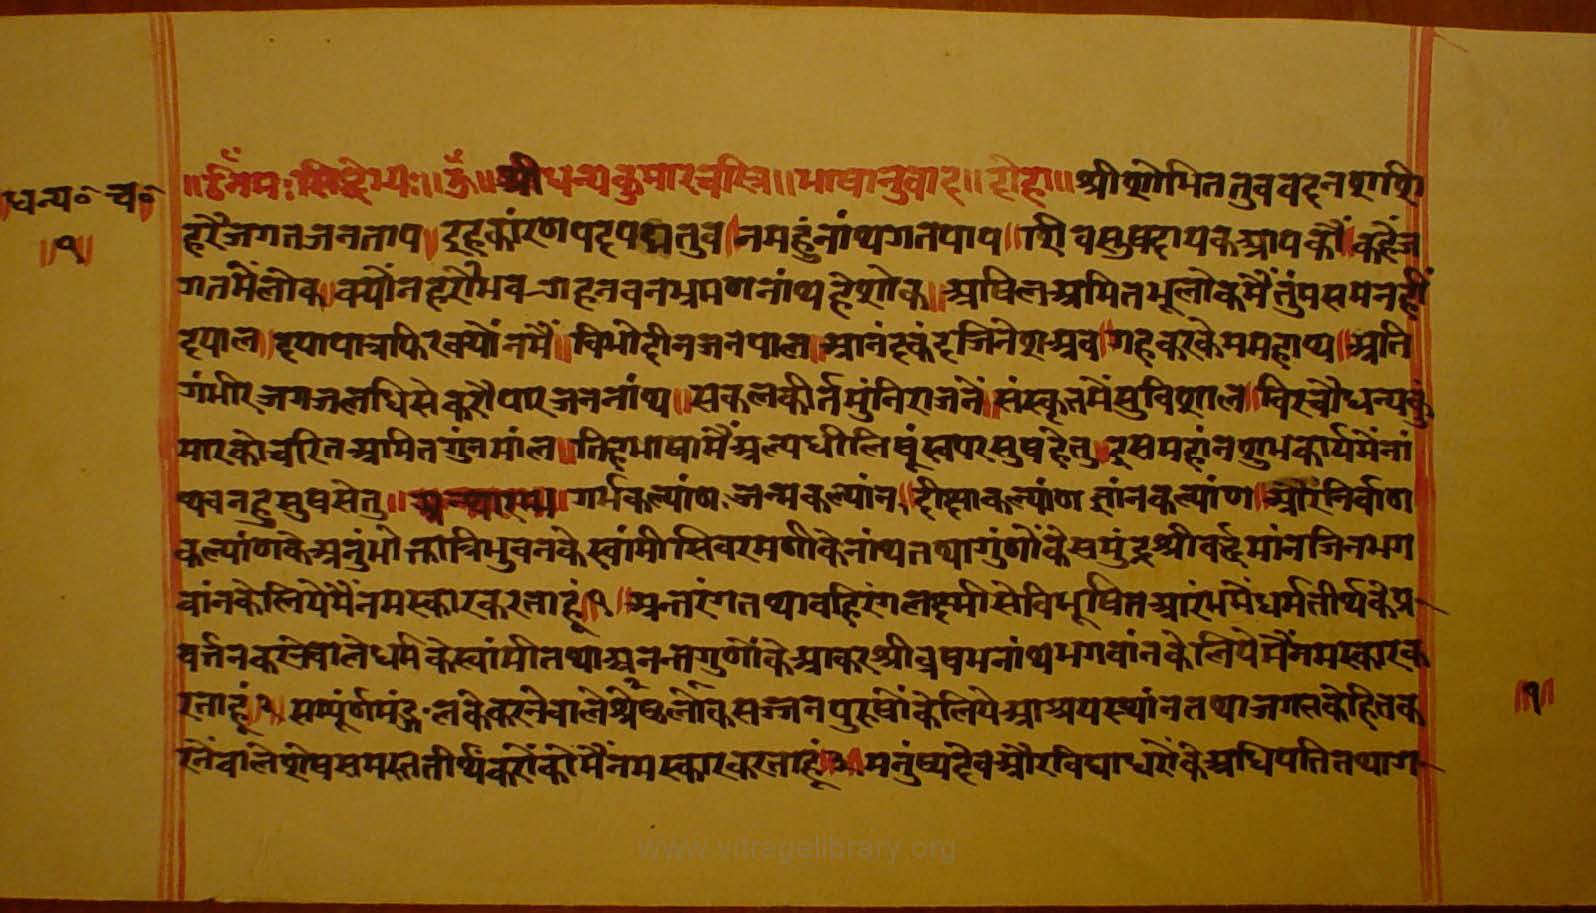 धन्य॰ च॰
॥१॥
॥ ॐ नमः सिद्धेभ्यः ॥ ॐ ॥ श्री धन्यकुमार चरित्र ॥ भाषानुवाद ॥ दोहा ॥ श्री शोभित तुव वदन शशि
हरै जगत जन ताप । इह कांरण पद पद्म तुव । नमहुं नांथ गत पाप ॥ शिव सुषदायक आपकौं । कहै ज
गतमैं लोक । क्यौं न हरौ भव गहन वन भ्रमण नांथ हे शोक ॥ अषिल अमित भूलोकमैं तुंम सम नहीं
दृपाल । दृपा पात्र फिर क्यौं नमैं ॥ विभो दीन जन पाल ॥ आनंदकंद जिनेश अब । गह करके मम हाथ ॥ अति
गंभीर जग जलधि से करौ पार जन नांथ ॥ सकल कीर्त मुंनिराजनें ॥ संस्कृतमें सुविशाल । विरचौ धन्यकुं
मारको चरित अमित गुंन मांल ॥ तिह भाषामैं अल्प धी लिषूं स्वपर सुष हेतु । इस महांन शुभ कार्यमैं नां
थ बनहु सुष सेतु ॥ ग्रन्थारम्भ ॥ गर्भ कल्यांण, जन्म कल्यांन, दीक्षा कल्यांण ज्ञांन कल्यांण । और निर्वाण
कल्यांणके अनुंभोक्ता त्रिभुवनके स्वांमी सिवरमणीके नांथ तथा गुंणोंके समुंद्र श्री वर्द्धमांन जिन भग
वांनके लिये मैं नमस्कार करता हूं । १ । अन्तरंग तथा वहिरंग लक्ष्मी से विभूषित आरंभमें धर्म तीर्थके प्र
वर्त्तन करनेवाले धर्मके स्वांमी तथा अनन्त गुणोंके आकर श्री वृषभनांथ भगवांनके लिये मैं नमस्कार क
रता हूं । २ ॥ सम्पूंर्ण मंङ्गलंके करनेवाले श्रेष्ठ लोक सज्जन पुरुषोंके लिये आश्रय स्थांन तथा जगतके हित क
रनेंवाले शेष समस्त तीर्थंकरोंको मैं नमस्कार करता हूं ॥ ३ ॥ मनुंष्य देव और विद्याधरोंके अधिपति तथा ग
॥१॥
www.vitragelibrary.org